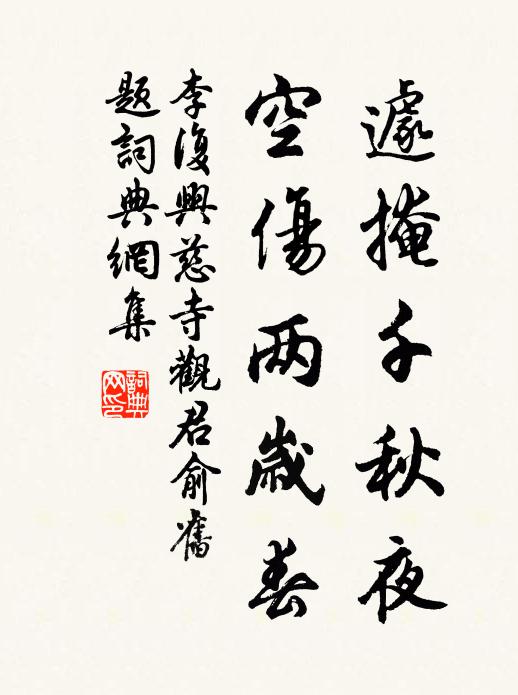 遽掩千秋夜
空傷兩歲春
李復興慈寺觀君俞舊
題詞典網集
詞典
网印